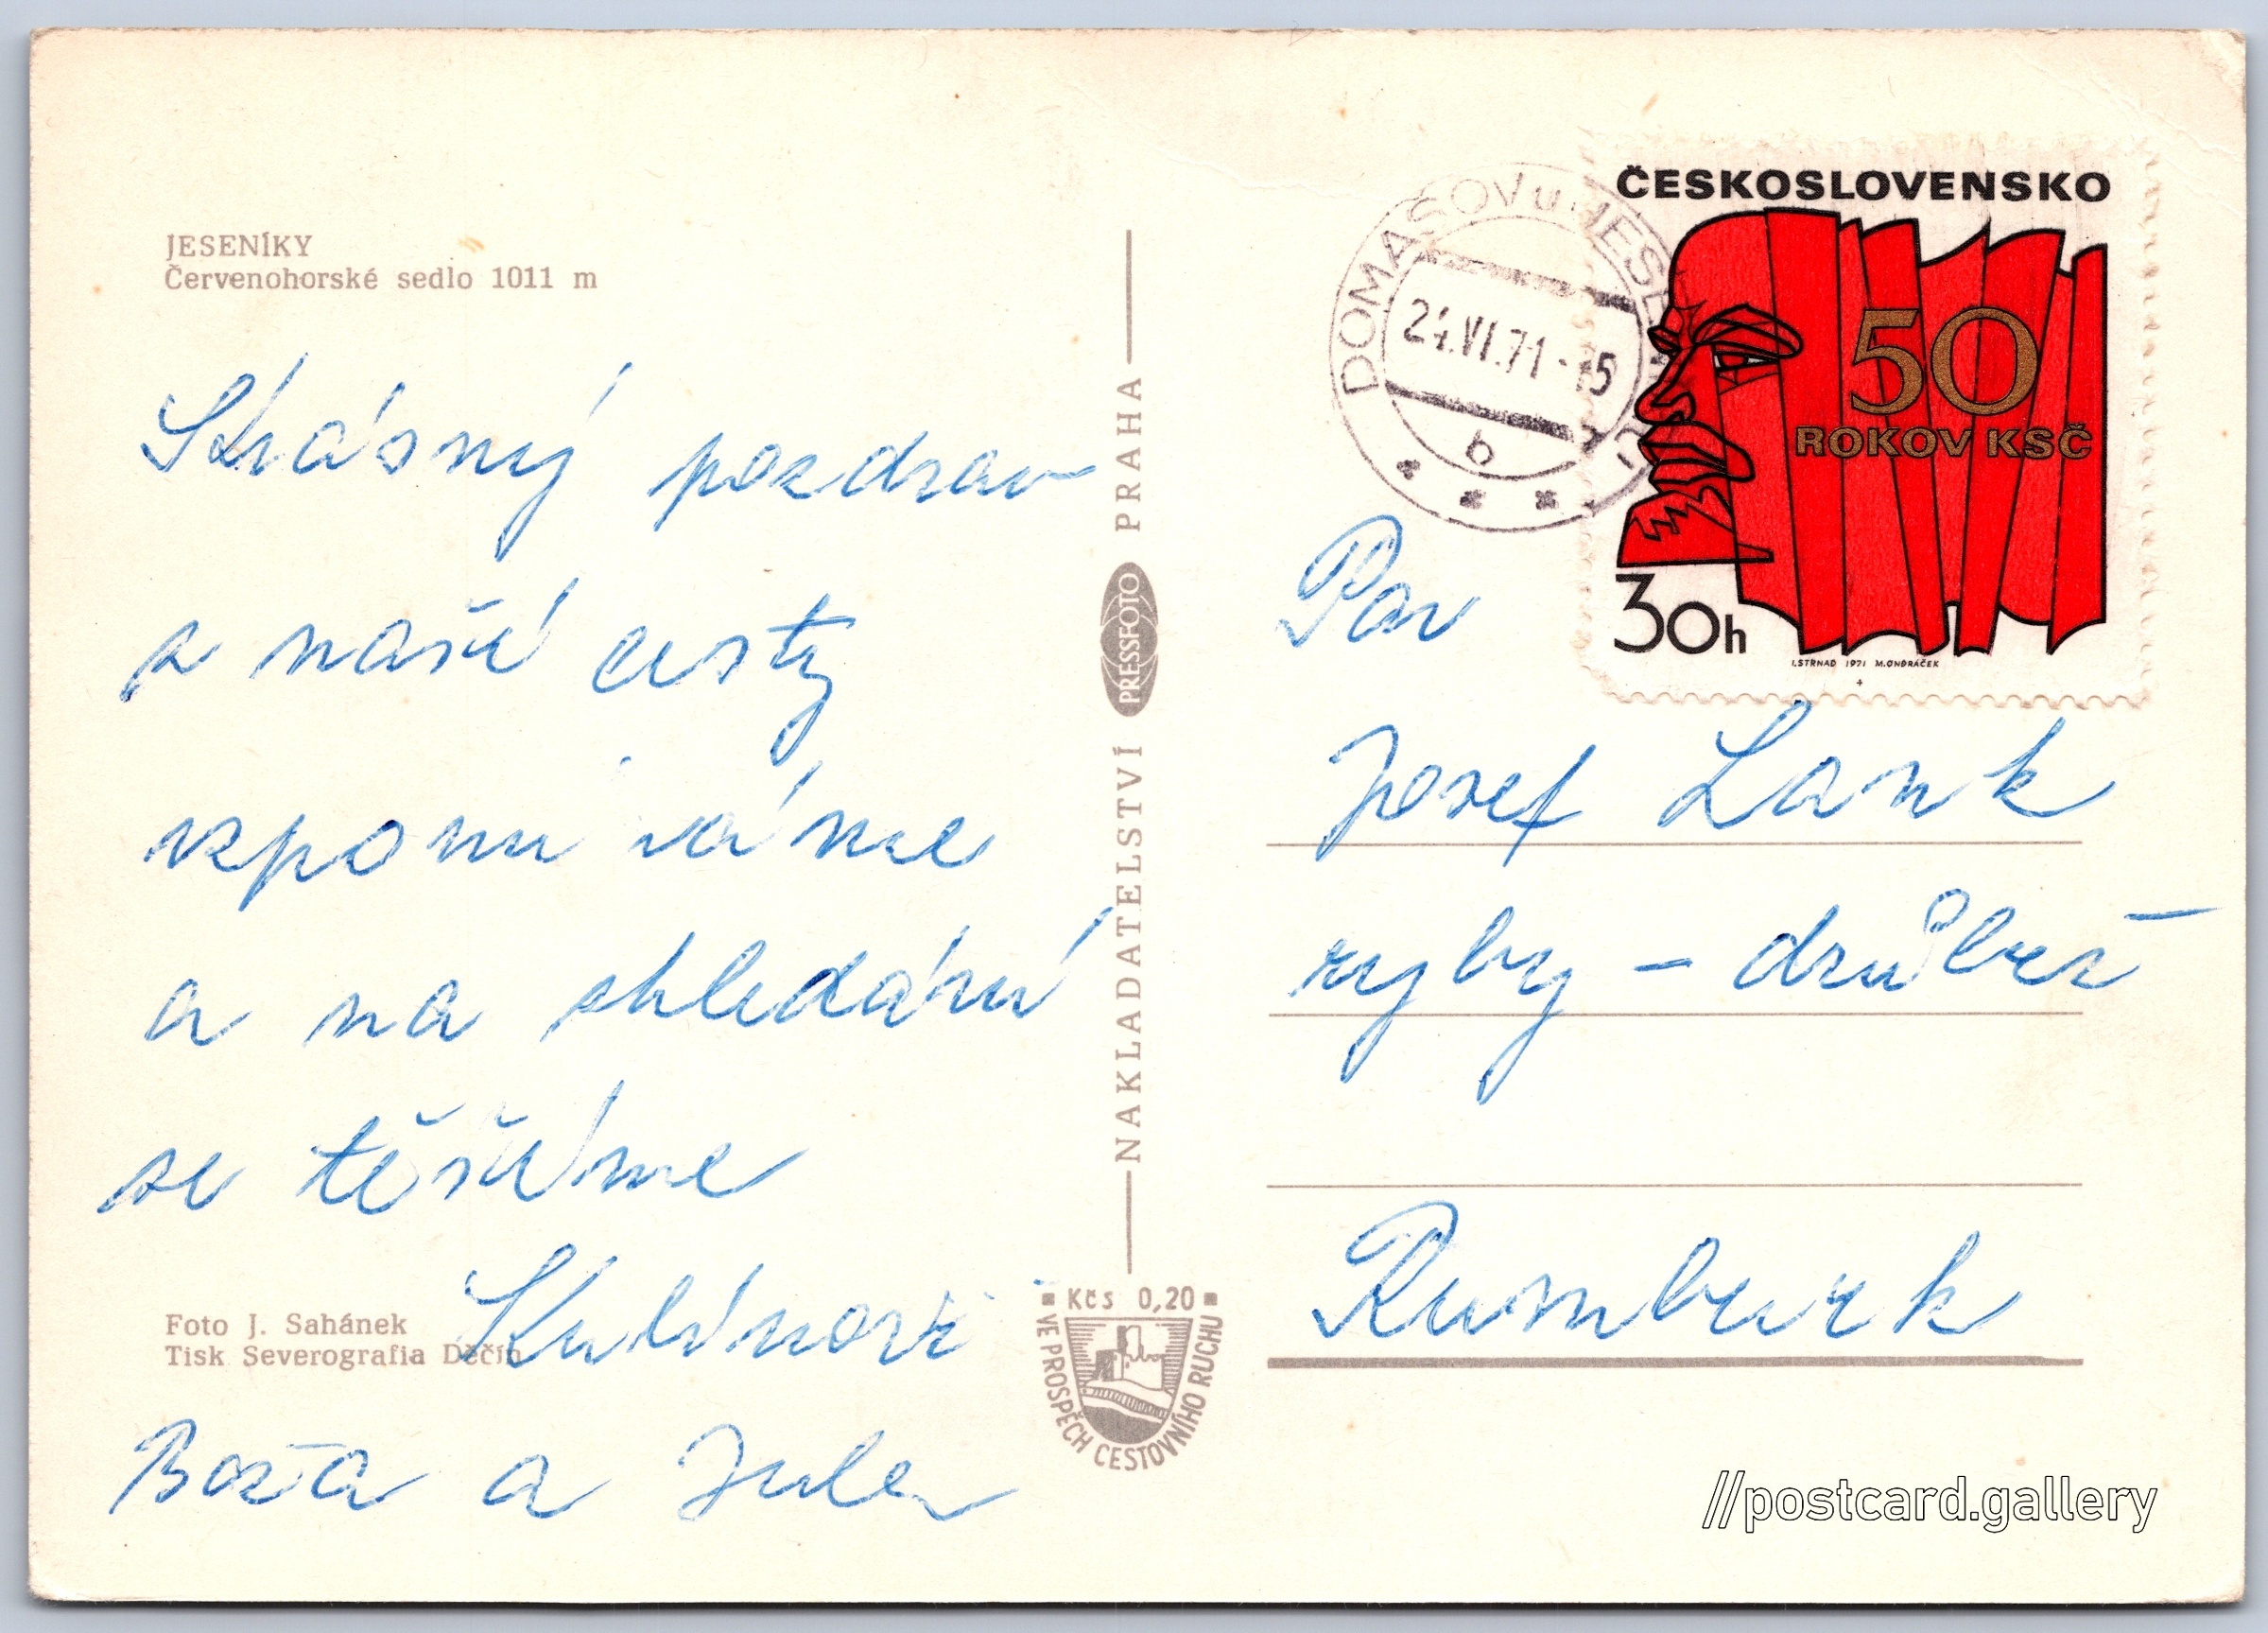 JESENÍKY
Červenohorské sedlo 1011 m
Krásný pozdrav
z naší cesty
vzpomínáme
a na shledání
se těšíme
Kulínovi
Boža a Jula
Foto J. Sahánek
Tisk Severografia Děčín
NAKLADATELSTVÍ PRESSFOTO PRAHA
Kčs 0,20
VE PROSPĚCH CESTOVNÍHO RUCHU
DOMAŠOV u JES
24.VI.71-15
b
ČESKOSLOVENSKO
50
ROKOV KSČ
30h
I.STRNAD 1971 M.ONDRÁČEK
Pan
Josef Lank
ryby - drůbež
Rumburk
//postcard.gallery